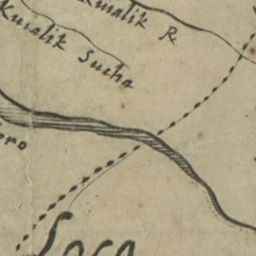 Kuialik R
Kuialik Sucha
oro
Soca